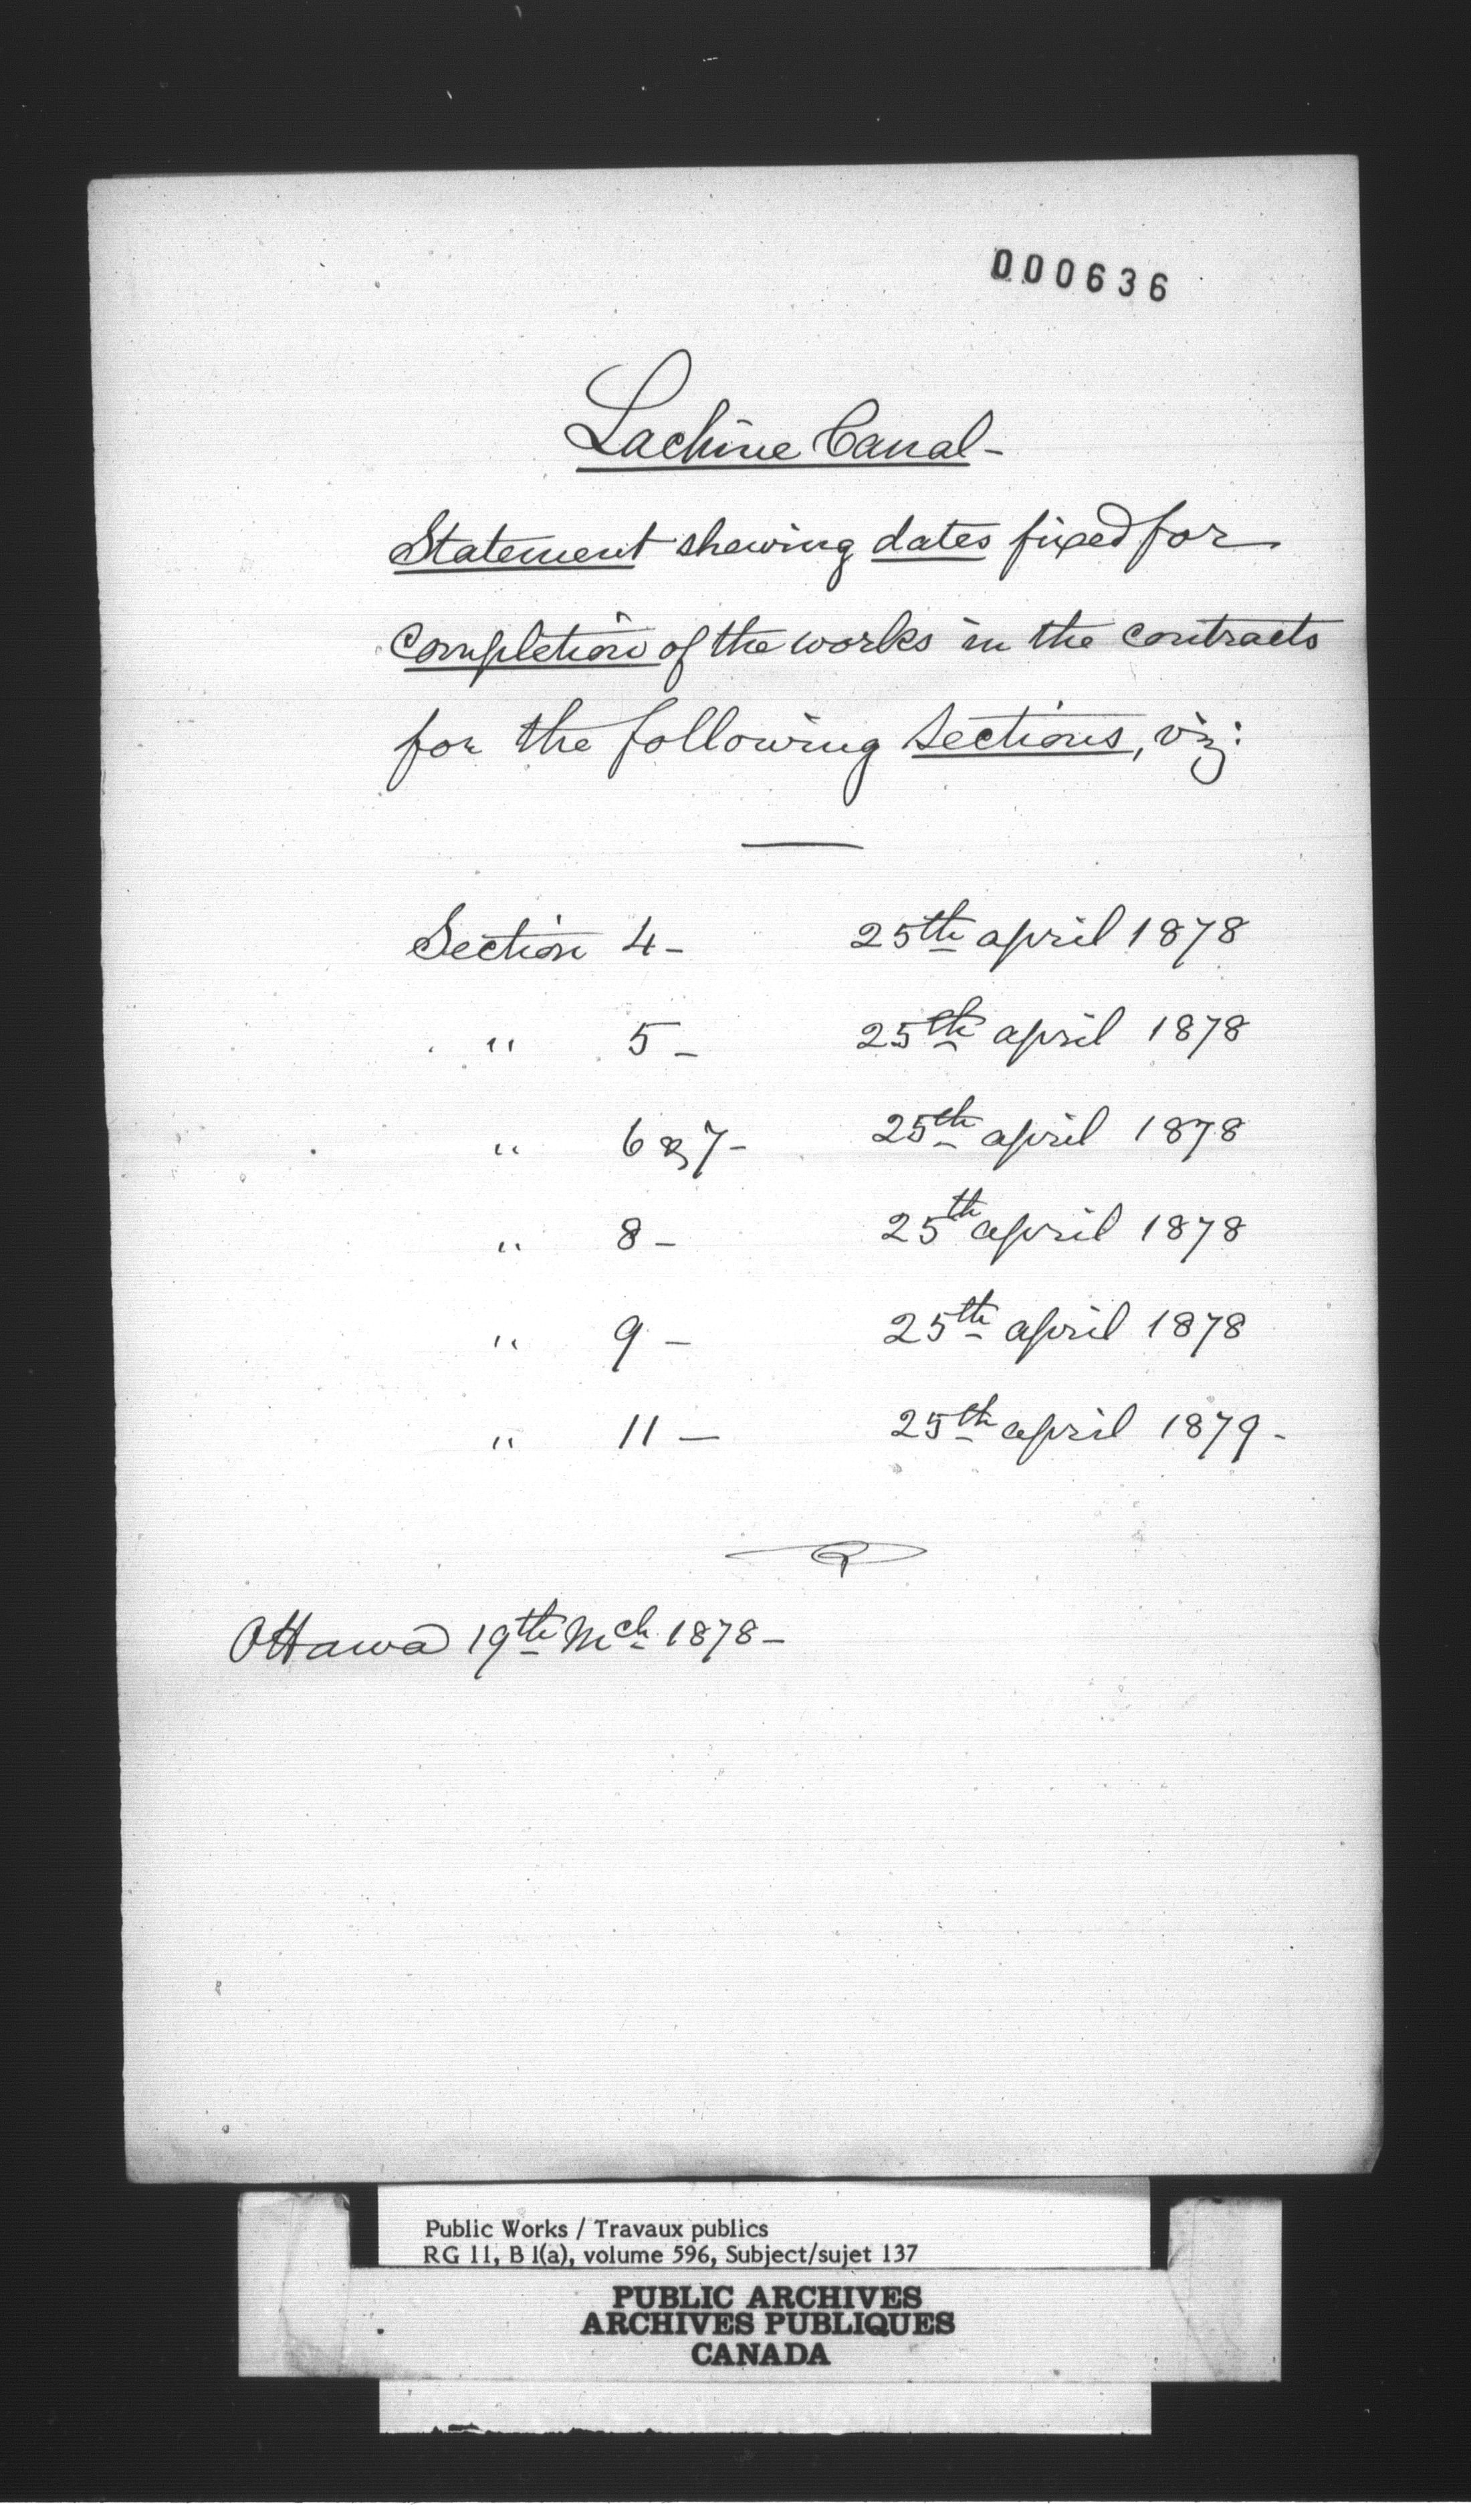 000636
Lachine Canal-
Statement shewing dates fixed for
completion of the works in the contracts
for the following sections, viz:
Section 4- 25th april 1878
" 5- 25th april 1878
" 6 & 7- 25th april 1878
" 8- 25th april 1878
" 9- 25th april 1878
" 11- 25th april 1879-
Ottawa 19th Mch 1878-
Public Works / Travaux publics
RG 11, B 1(a), volume 596, Subject/sujet 137
PUBLIC ARCHIVES
ARCHIVES PUBLIQUES
CANADA